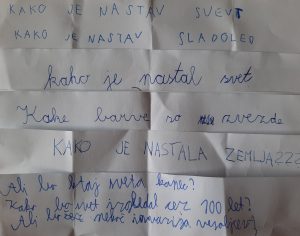 KAKO JE NASTAV SVEVT
KAKO JE NASTAV SLADOLED
kako je nastal svet
Kake barve so zvezde
KAKO JE NASTALA ZEMLJA???
Ali bo kdaj sveta konec?
Kako bo svet izgledal čez 100 let?
Ali bo